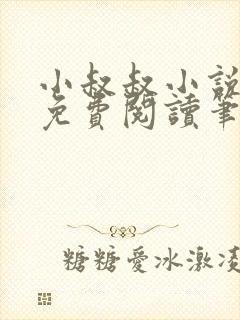 小叔叔小說
免費閱讀筆
糖糖愛冰激凌